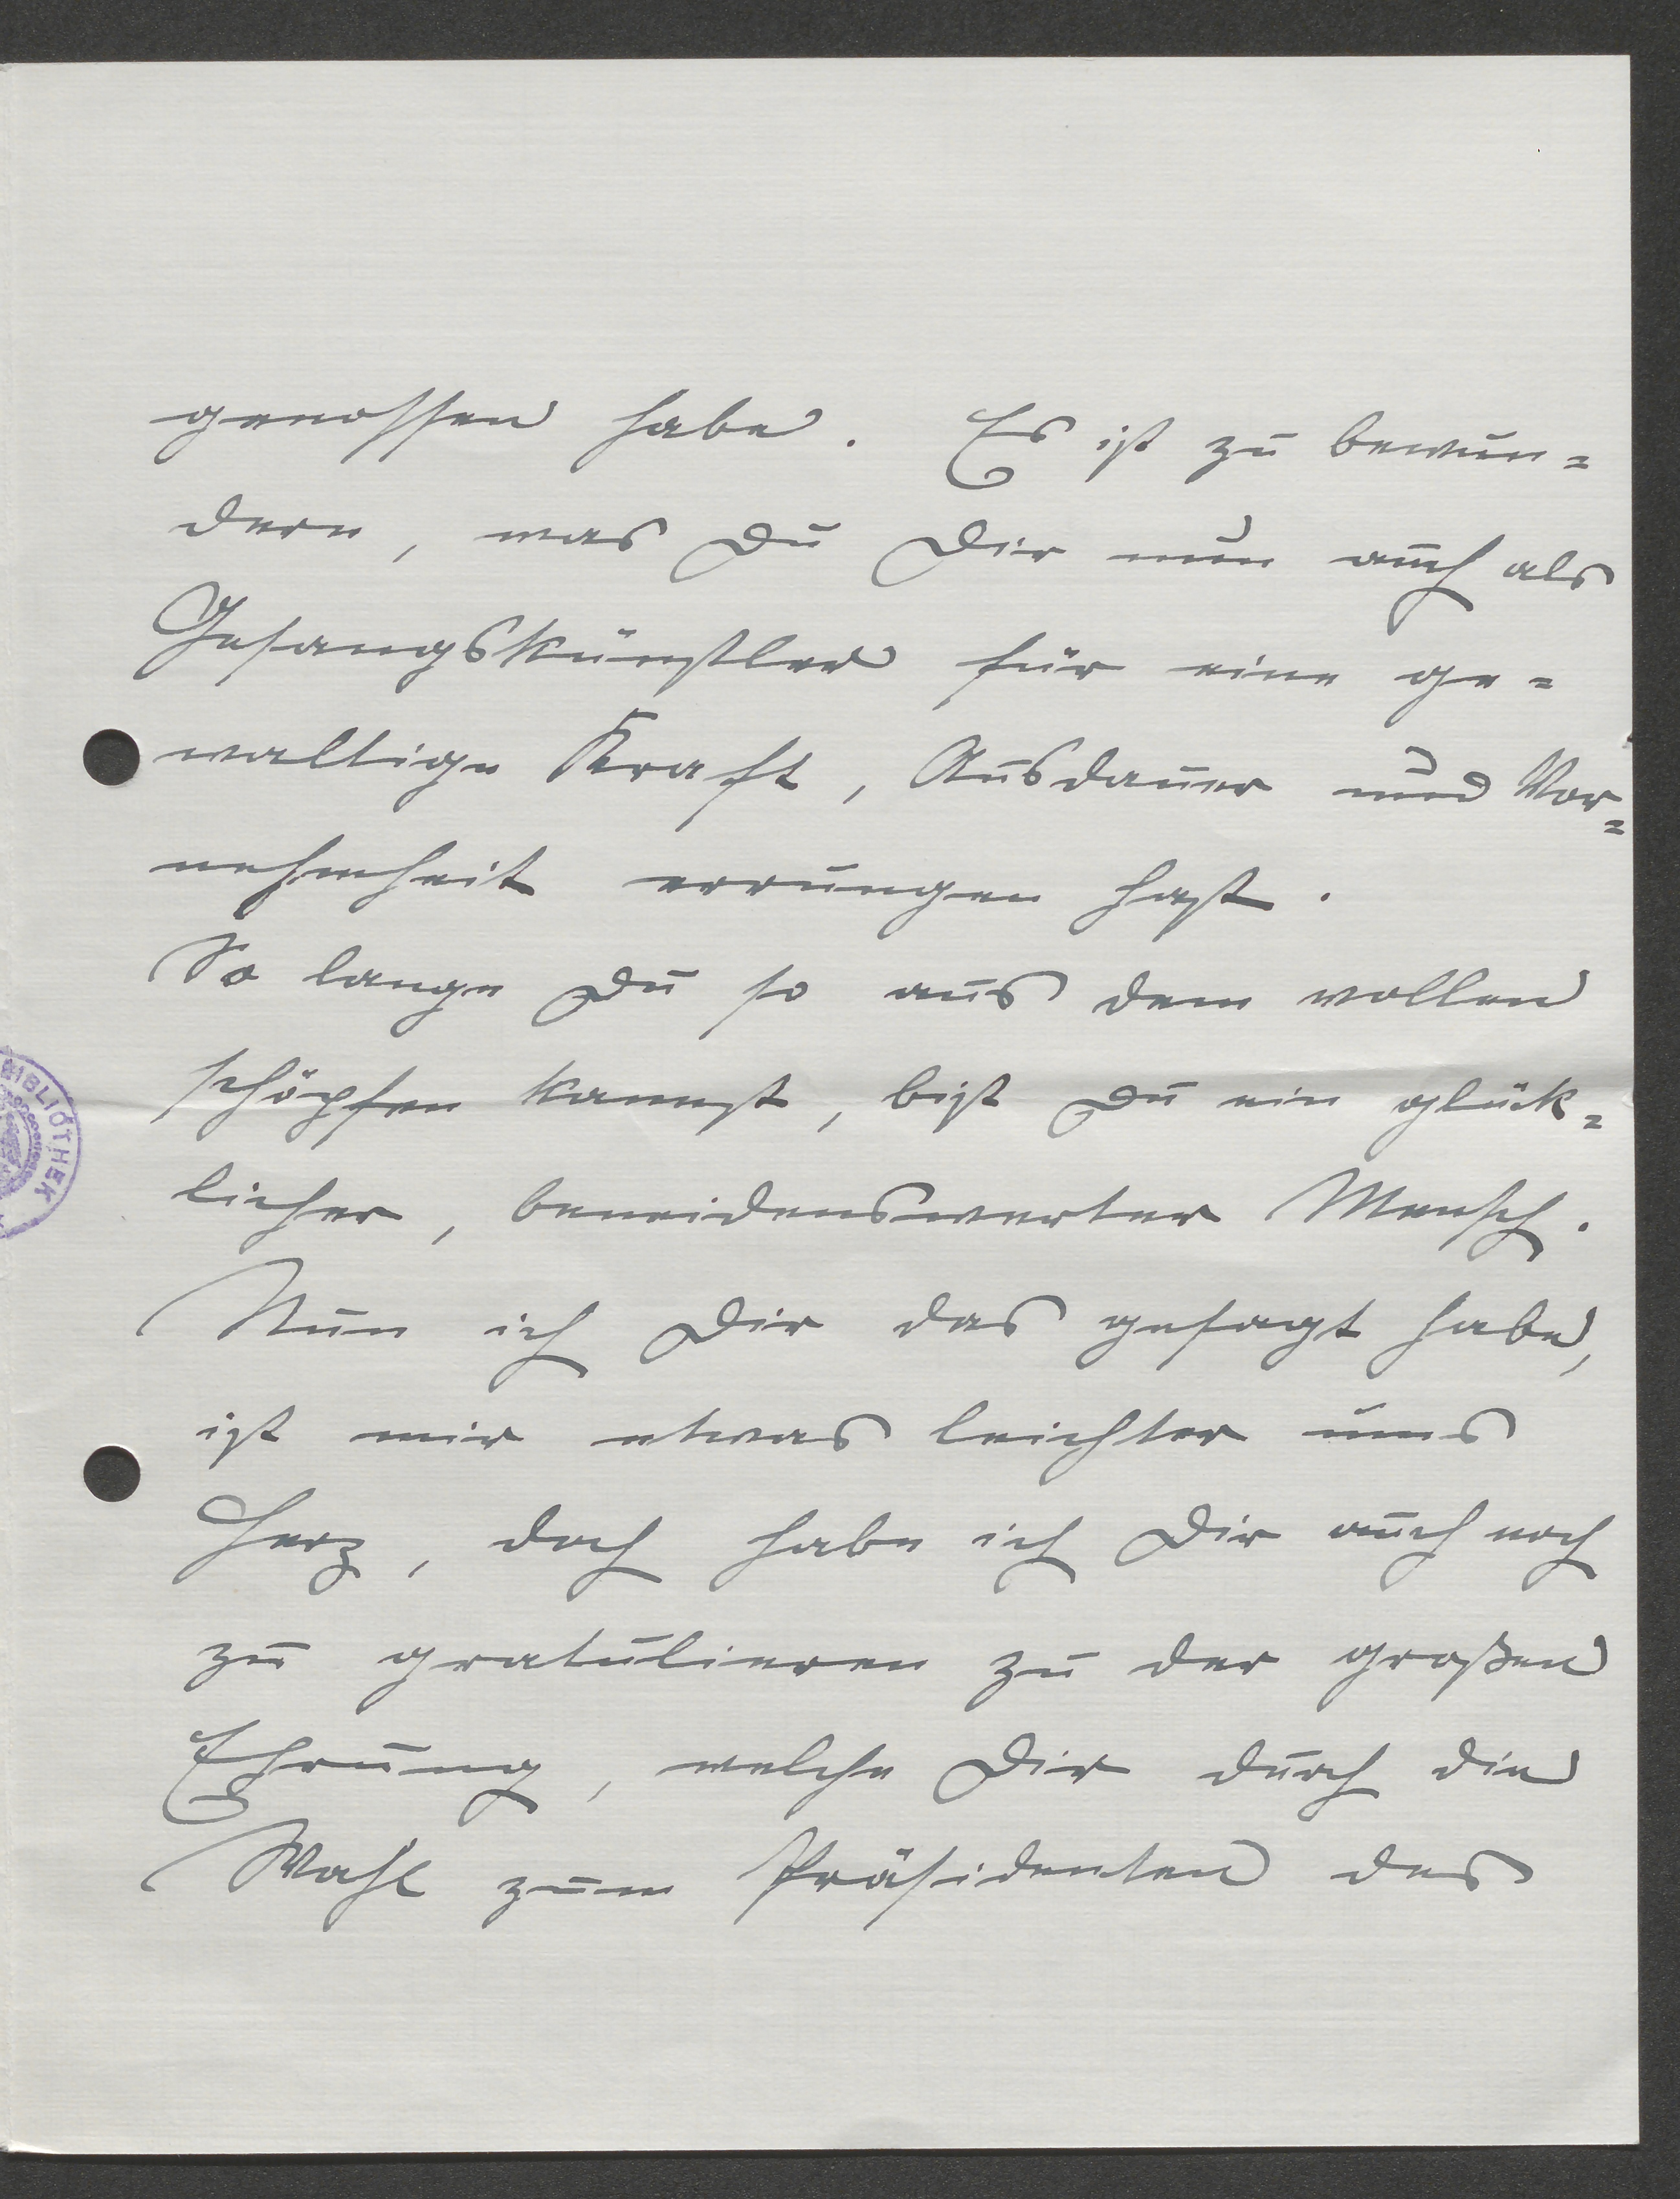 genossen habe. Es ist zu bewun=
dern, was Du Dir nun auch als
Gesangskünstler für eine ge=
waltige Kraft, Ausdauer und Vor=
nehmheit errungen hast.
So lange Du so aus dem vollen
schöpfen kannst, bist Du ein glück=
licher, beneidenswerter Mensch.
Nun ich Dir das gesagt habe,
ist mir etwas leichter ums
Herz, doch habe ich Dir auch noch
zu gratulieren zu der großen
Ehrung, welche Dir durch die
Wahl zum Präsidenten des
BIBLIOTHEK